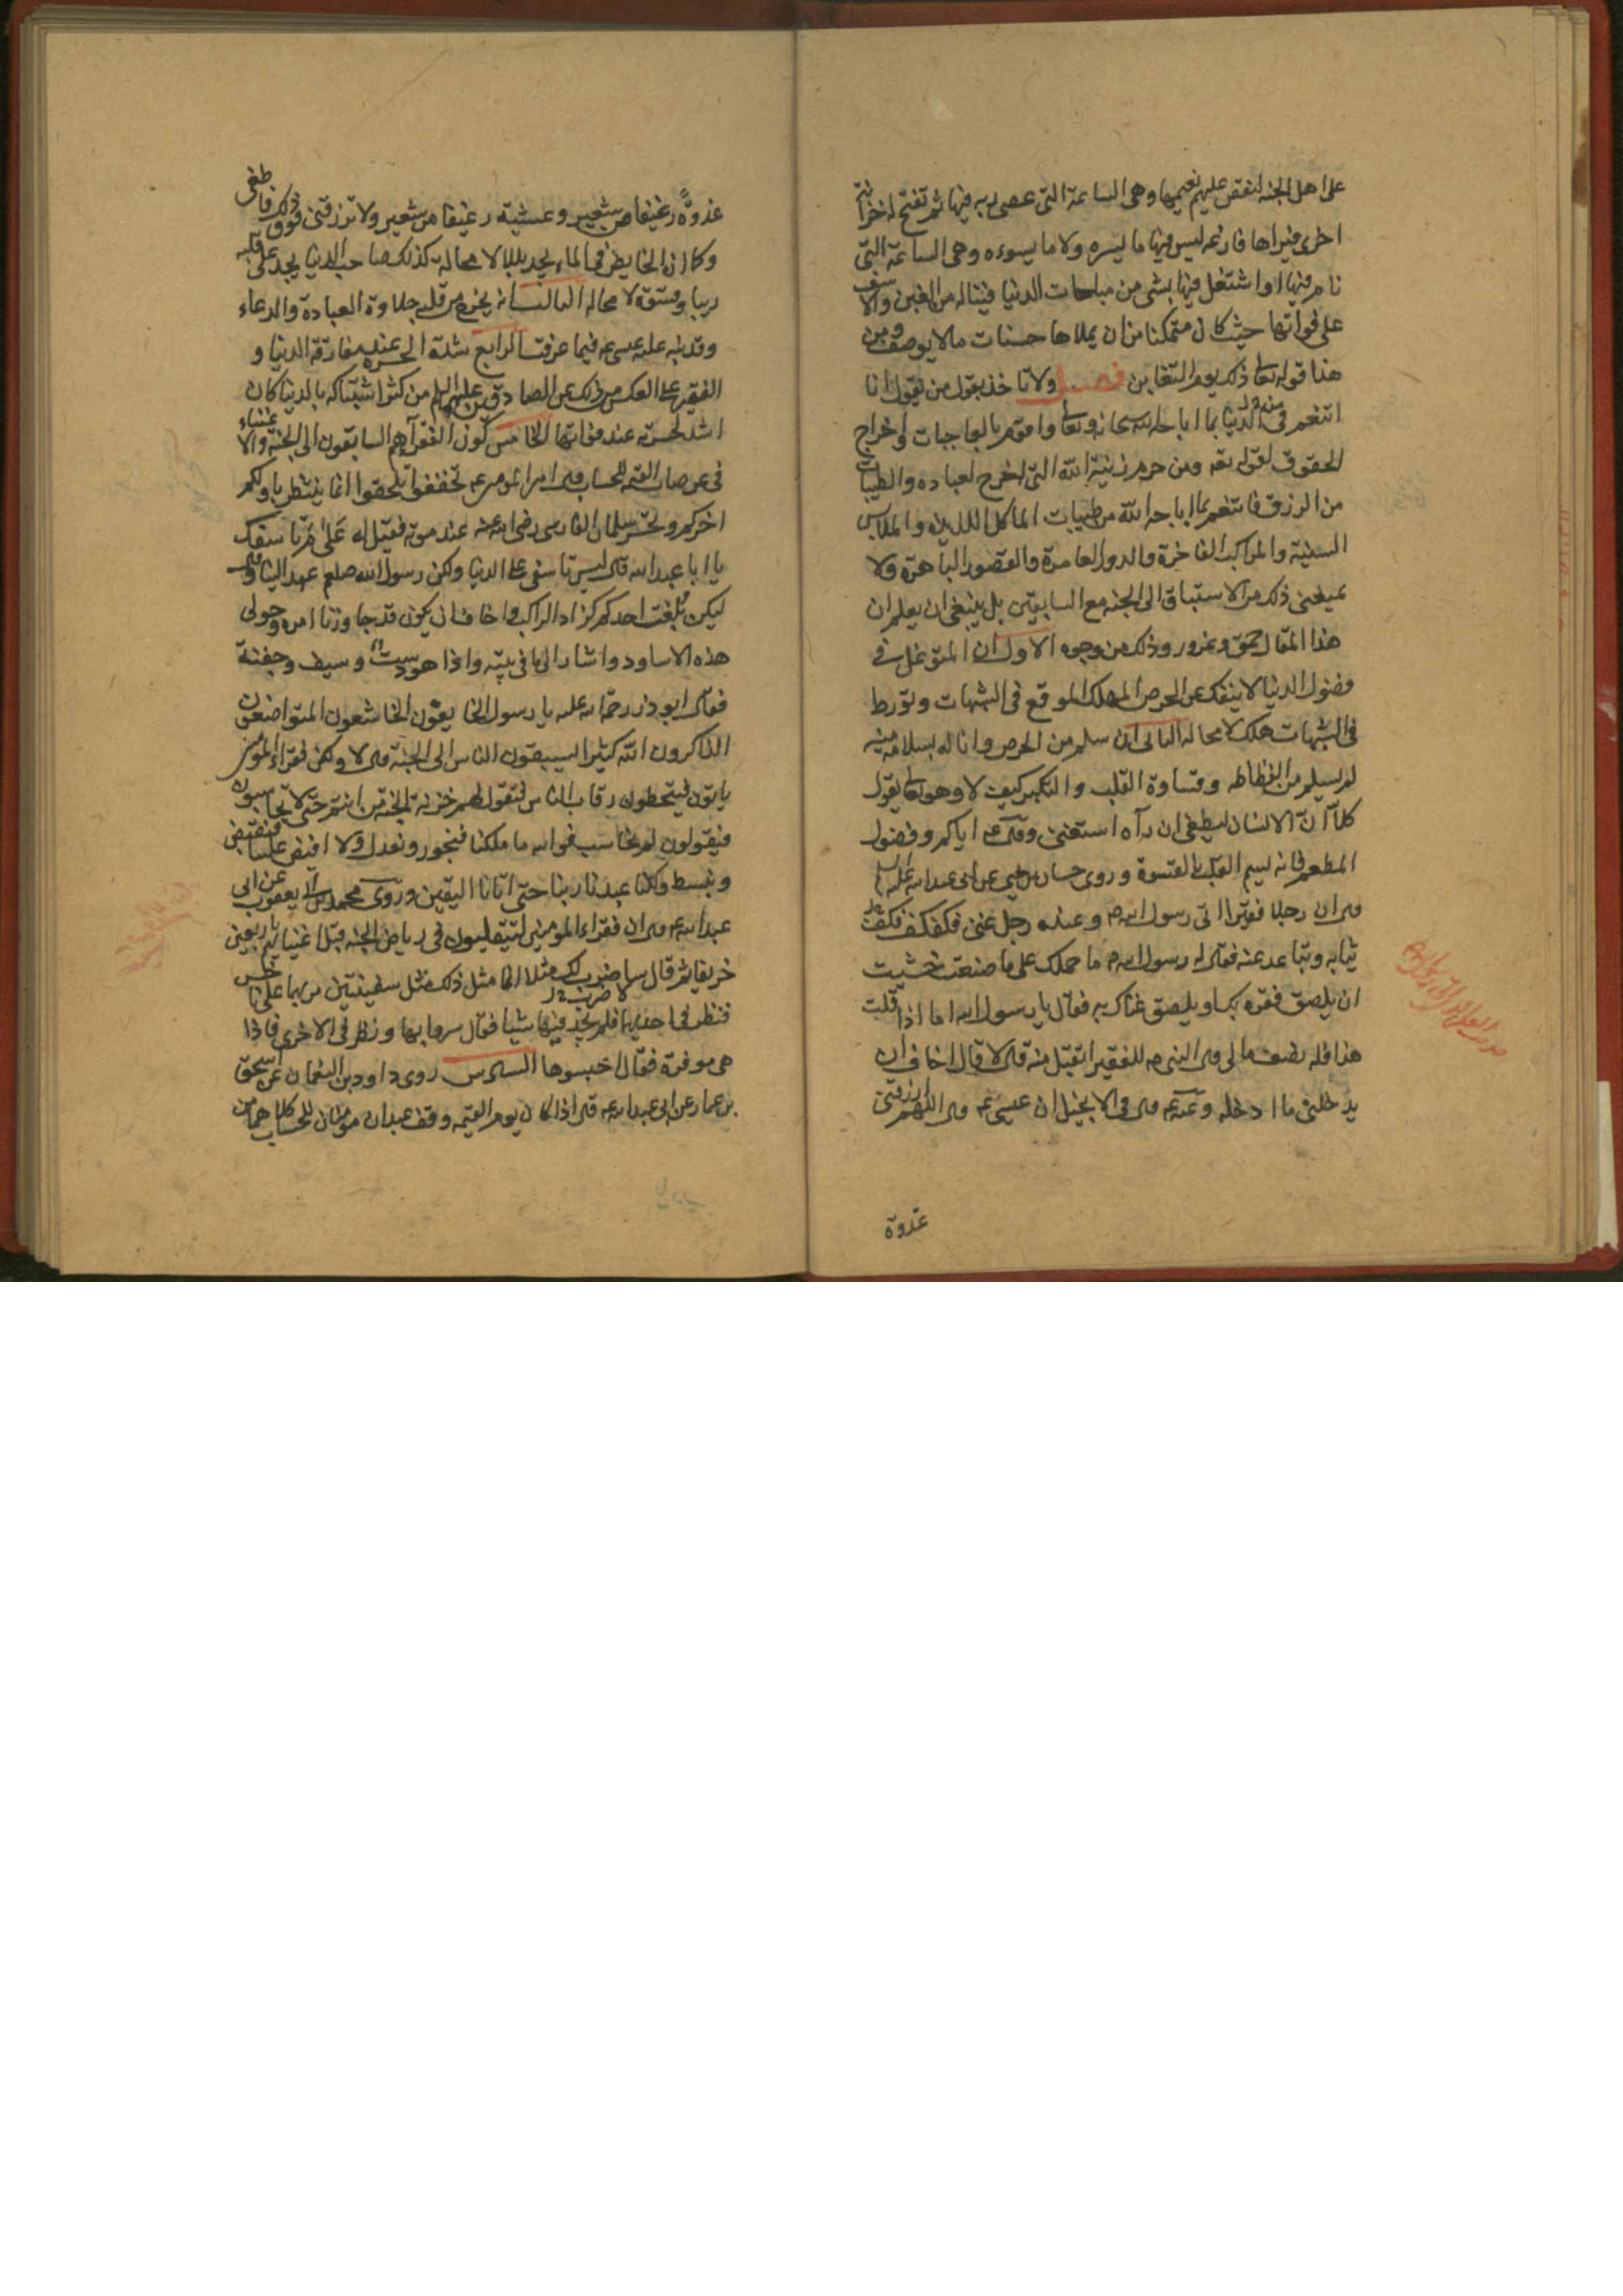 على اهل الجنه لنغص عليهم نعيمها وهى الساعة التى عصى ربه فيها ثم تفتح له خزانة
اخرى فيراها فارغه ليس فيها ما يسره ولا ما يسوءه وهى الساعة التى
نام فيها او اشتغل فيها بشى من مباحات الدنيا فيناله من الغبن والاسف
على فواتها حيث كان متمكنا من ان يملاها حسنات ما لا يوصف ومن
هذا قوله تعالى ذلك يوم التغابن فصل ولا تاخذ بقول من يقول انا
اتنعم فى الدنيا بما اباحه الله سبحانه وتعالى واقوم بالواجبات واخراج
الحقوق لقوله تعه ومن حرم زينة الله التى اخرج لعباده والطيبات
من الرزق فاتنعم بما اباحه الله من طيبات الماكل اللذيذه والملابس
السنية والمراكب الفاخرة والدور العامرة والقصور الباهرة ولا
يمنعنى ذلك من الاستباق الى الجنه مع السابقين بل ينبغى ان يعلم ان
هذا المقال حمق وغرور وذلك من وجوه الاول ان المتوغل فى
فضول الدنيا لا ينفك عن الحرص المهلك الموقع فى الشبهات وتورط
فى الشبهات هلك لا محاله الثانى ان سلم من الحرص وانا له بسلامة منه
لم يسلم من الفظاظه وقساوة القلب والتكبر كيف لا وهو تعالى يقول
كلا ان الانسان ليطغى ان رآه استغنى وقال ع اياكم وفضول
المطعم فانه يسم القلب بالقسوة وروى حسان بن يحيى عن ابى عبد الله عليه السلم
قال ان رجلا فقيرا اتى رسول الله ص وعنده رجل غنى فكفكف
ثيابه وتباعد عنه فقال له رسول الله ص ما حملك على ما صنعت خشيت
ان يلصق فقره بك او يلصق غناك به فقال يا رسول الله اما اذا قلت
هذا فله نصف مالى قال النبى ص للفقير اتقبل منه قال لا قال اخاف ان
يدخلنى ما ادخله وعنه ع قال فى الانجيل ان عيسى ع قال اللهم ارزقنى
غدوة
غدوة رغيفا من شعير وعشية رغيفا من شعير ولا ترزقنى فوق ذلك فاطغى
وكما ان الخايض فى الماء يجد بللا لا محاله كذلك صاحب الدنيا يجد على قلبه
رينا وقسوة لا محاله الثالث انه يخرج من قلبه حلاوة العبادة والدعاء
وقد نبه عليه عيسى ع فيما عرفت الرابع شدة الحسرة عند مفارقة الدنيا و
الفقير على العكس من ذلك عن الصادقين عليهم السلم من كثر اشتباكه بالدنيا كان
اشد لحسرته عند مفاتها الخامس كون الفقرآ هم السابقون الى الجنة والاغنياء
فى عرصات القيمة للحساب قال امير المؤمنين ع تخففوا تلحقوا انما ينتظر باولكم
اخركم وتحسر سلمان الفارسى رضى الله عنه عند موته فقيل له على م تاسفك
يا ابا عبد الله قال ليس تاسفى على الدنيا ولكن رسول الله صلعم عهد الينا وقال
ليكن بلغة احدكم كزاد الراكب واخاف ان يكون قد جاوزنا امره وحولى
هذه الاساود واشار الى ما فى بيته واذا هو دست وسيف وجفنة
فقال ابو ذر رحمة الله عليه يا رسول الله الخايفون الخاشعون المتواضعون
الذاكرون الله كثيرا ايسبقون الناس الى الجنة قال لا ولكن فقراء المومنين
ياتون فيتخطون رقاب الناس فتقول لهم خزنة الجنة كما انتم حتى تحاسبوا
فيقولون بم نحاسب فوالله ما ملكنا فنجور ونعدل ولا افيض علينا فنقبض
ونبسط ولكنا عبدنا ربنا حتى اتانا اليقين وروى محمد بن يعقوب عن ابى
عبد الله ع قال ان فقراء المومنين ليتقلبون فى رياض الجنه قبل اغنيائهم باربعين
خريفا ثم قال ساضرب لك مثلا انما مثل ذلك مثل سفينتين مر بهما على عاشر
فنظر فى احديهما فلم يجد فيها شيئا فقال اسربوها ونظر فى الاخرى فاذا
هى موقرة فقال احبسوها السادس روى داود بن النعمان عن اسحق
بن عمار عن ابى عبد الله ع قال اذا كان يوم القيمه وقف عبدان مؤمنان للحساب كلاهما من